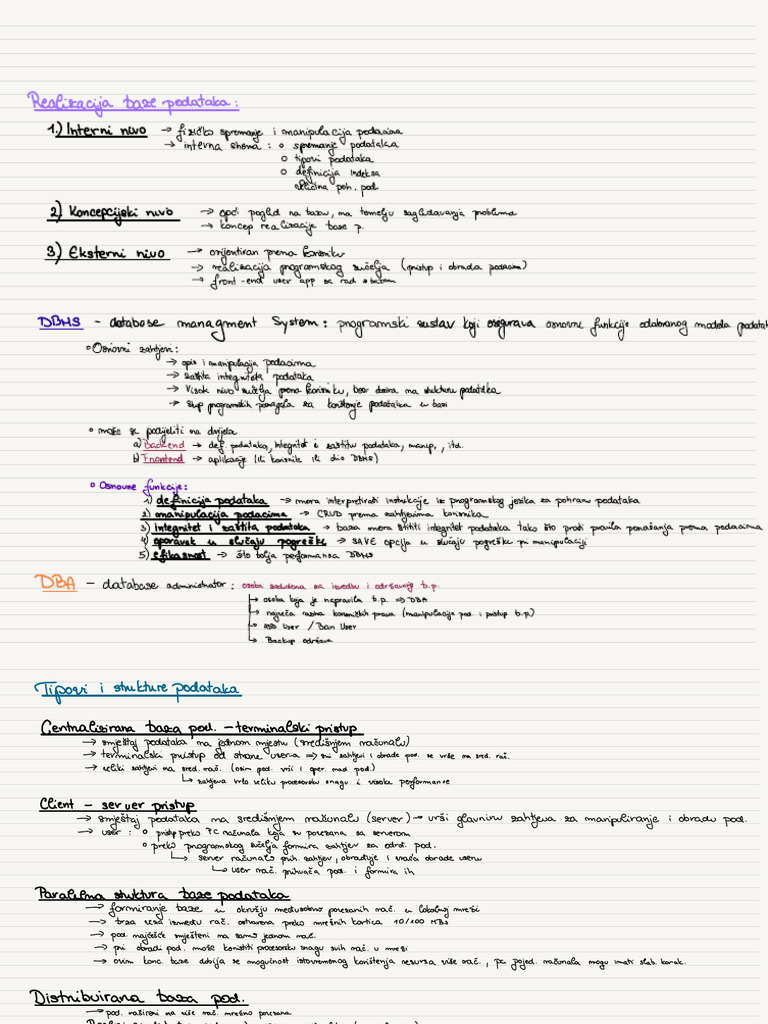 Realizacija baze podataka:
1.) Interni nivo → fizičko spremanje i manipulacija podacima
→ interna shema: o spremanje podataka
o tipovi podataka
o definicija indeksa
veličina poh. pod.
2) Koncepcijski nivo → opći pogled na bazu, na temelju sagledavanja problema
→ koncep realizacije baze p.
3) Eksterni nivo → orijentiran prema korisniku
→ realizacija programskog sučelja (pristup i obrada podacima)
→ front-end user app za rad s bazom
DBMS - database managment System: programski sustav koji osigurava osnovne funkcije odabranog modela podatak
o Osnovni zahtjevi:
→ opis i manipulacija podacima
→ zaštita integriteta podataka
→ visok nivo sučelja prema korisniku, bez obzira na strukturu podataka
→ skup programskih pomagala za korištenje podataka u bazi
o može se podijeliti na dvijela
a) Backend → def. podataka, integritet i zaštitu podataka, manip., itd.
b) Frontend → aplikacije (ili korisnik ili dio DBMS)
o Osnovne funkcije:
1) definicija podataka → mora interpretirati instrukcije iz programskog jezika za pohranu podataka
2) manipulacija podacima → CRUD prema zahtjevima korisnika
3) integritet i zaštita podataka → baza mora štititi integritet podataka tako što prati pravila ponašanja prema podacima
4) oporavak u slučaju pogreške → SAVE opcija u slučaju pogreške pri manipulaciji
5) efikasnost → što bolja performansa DBMS
DBA - database administrator: osoba zadužena za izvedbu i održavanje b.p.
→ osoba koja je napravila b.p. ⇒ DBA
→ najveća razina korisničkih prava (manipulacija pod. i pristup b.p.)
→ User / Ban User
→ Backup održava
Tipovi i strukture podataka
Centralizirana baza pod. - terminalski pristup
→ smještaj podataka na jednom mjestu (središnjem računalu)
→ terminalski pristup od strane user-a ⇒ svi zahtjevi i obrade pod. se vrše na sred. rač.
→ veliki zahtjevi na sred. rač. (osim pod. vrši i oper. nad pod.)
↳ zahtjeva vrlo veliku procesorsku snagu i visoke performanse
Client - server pristup
→ smještaj podataka na središnjem računalu (server) → vrši glavninu zahtjeva za manipuliranje i obradu pod.
→ user: o pristup preko PC računala koja su povezana sa serverom
o preko programskog sučelja formira zahtjev za određ. pod.
↳ server računalo prih. zahtjev, obrađuje i vraća obrade useru
↳ user rač. prihvaća pod. i formira ih
Paralelna struktura baze podataka
→ formiranje baze u okružju međusobno povezanih rač. u lokalnoj mreži
→ brza veza između rač. ostvarena preko mrežnih kartica 10/100 MBs
→ pod. najčešće smješteni na samo jednom rač.
→ pri obradi pod. može koristiti procesorsku snagu svih rač. u mreži
→ ovim konc. baze dobija se mogućnost istovremenog korištenja resursa više rač., pa pojed. računala mogu imati slab. karak.
Distribuirana baza pod.
→ pod. rašireni na više rač. mrežno povezana